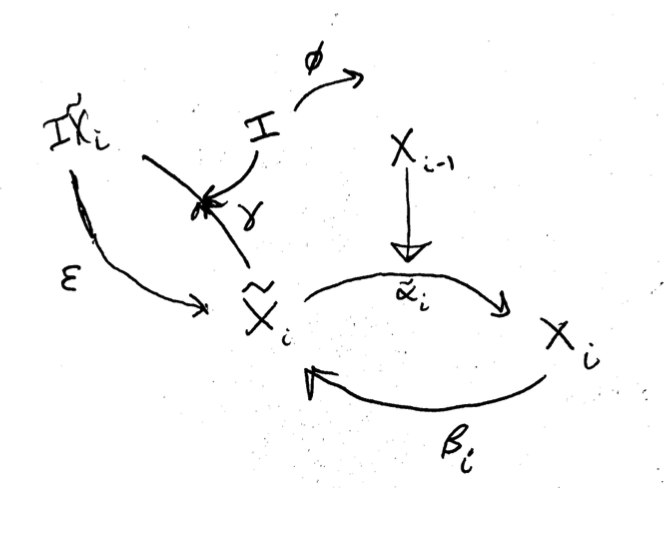 ϕ
IX̃ᵢ
I
Xᵢ₋₁
γ
ε
X̃ᵢ
α̃ᵢ
Xᵢ
βᵢ